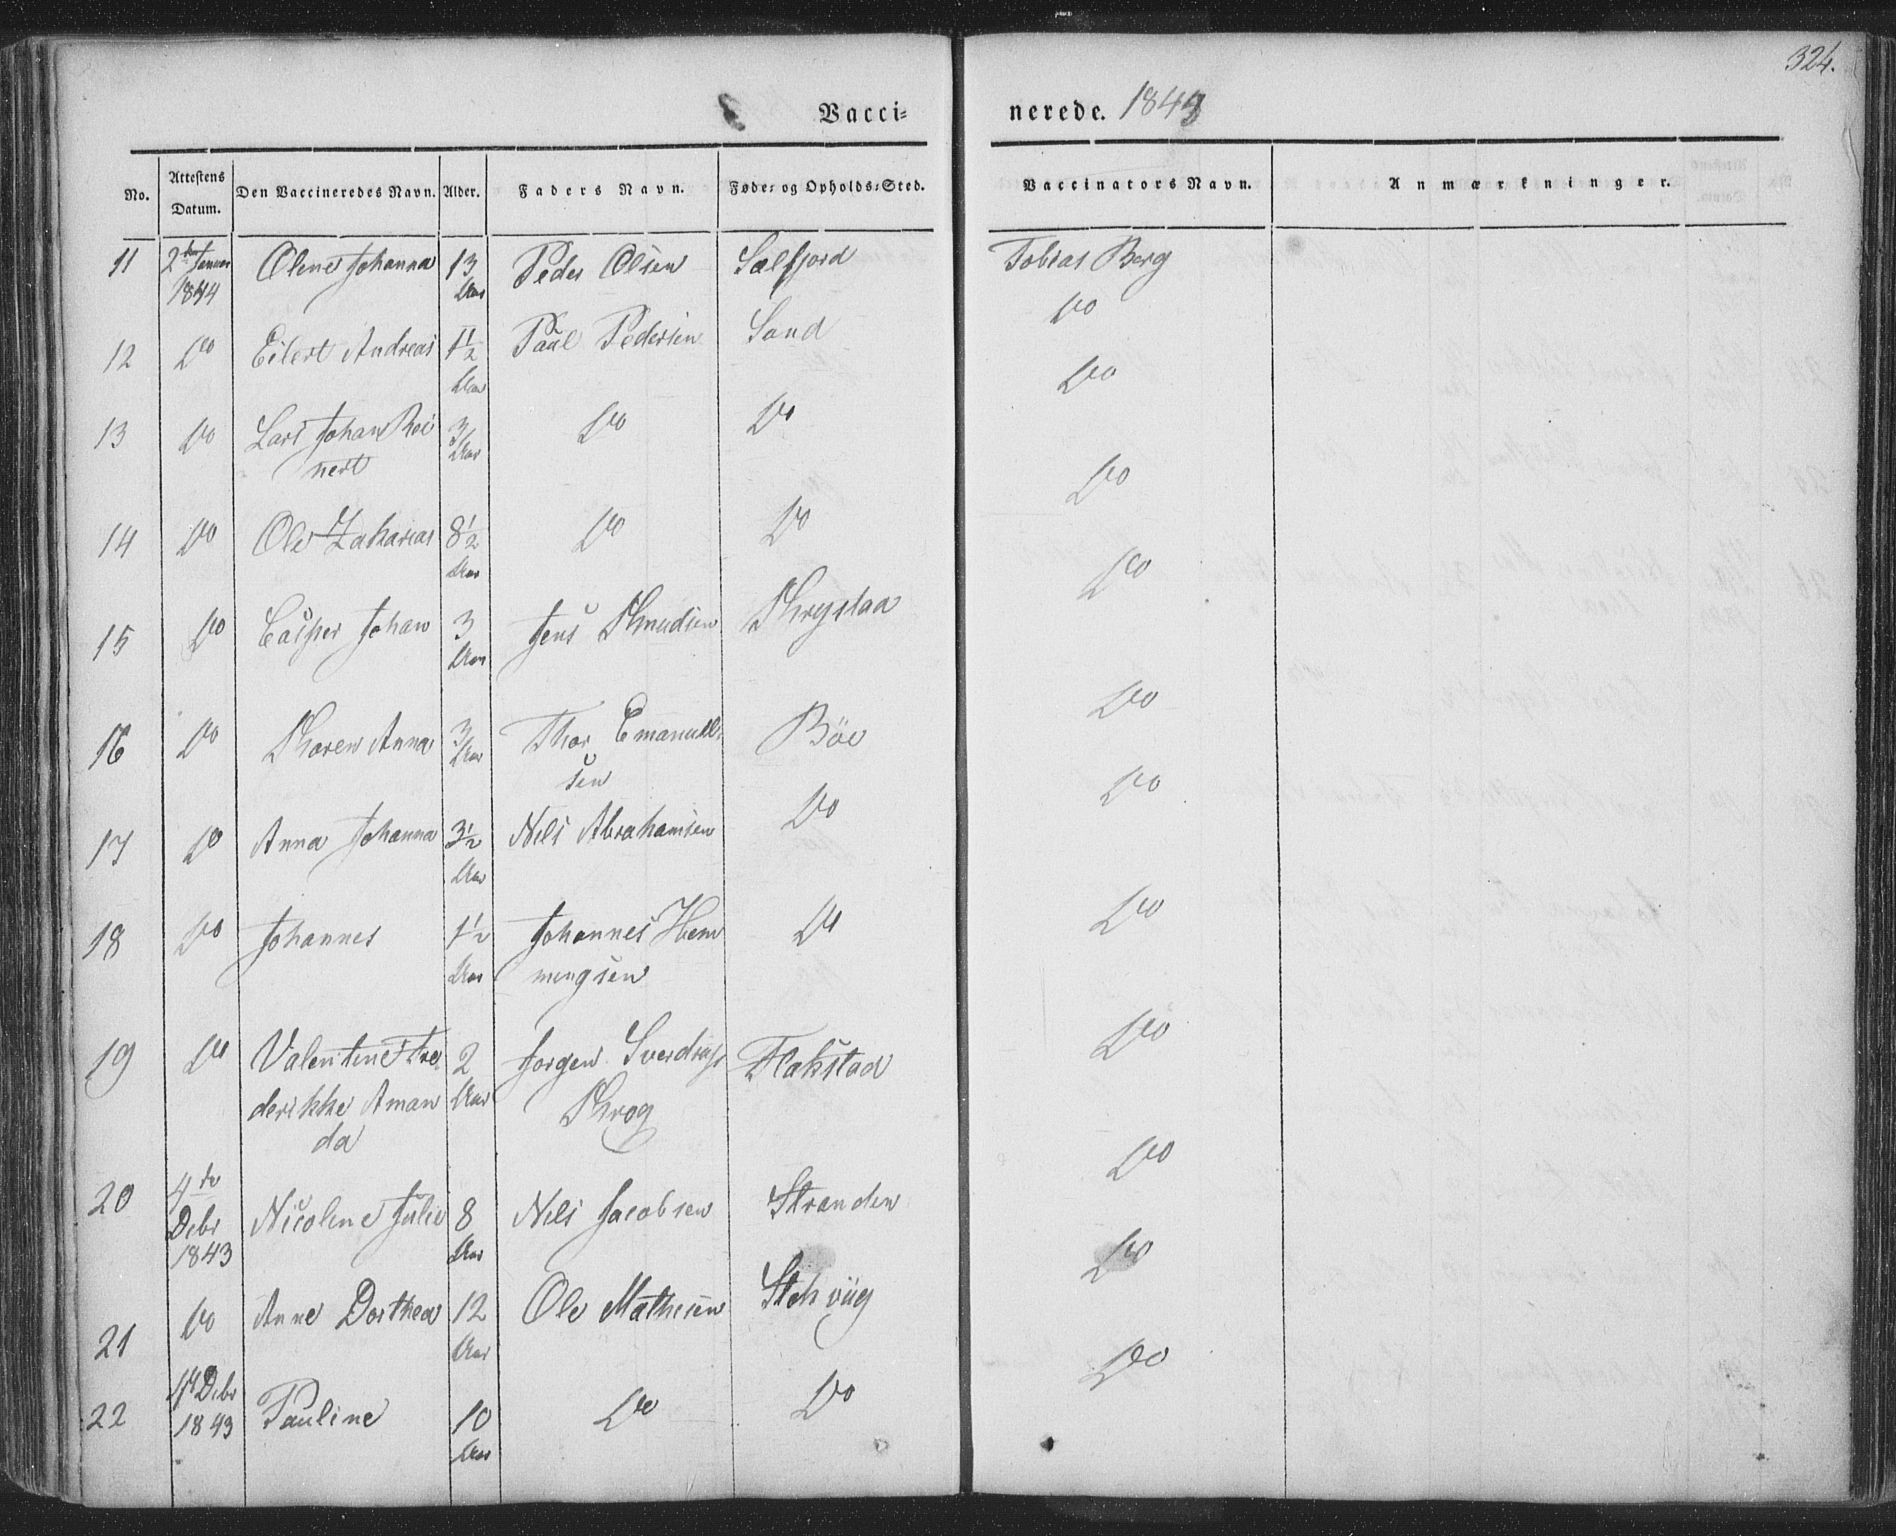 324.
Vacci= nerede. 1843
No. Attestens Datum. Den Vaccineredes Navn. Alder. Faders Navn. Føde= og Opholds=Sted. Vaccinators Navn. Anmærkninger.
11 2den Januar 1844 Olene Johanna 13 Aar Peder Olsen Selfjord Tobias Berg
12 Do Eilert Andreas 1 1/2 Aar Paal Pedersen Sand Do
13 Do Lars Johan Rei 3 Aar Do Do Do
nert
14 Do Ole Zakarias 8 1/2 Aar Do Do Do
15 Do Casper Johan 3 Aar Jens Khnudsen Khrystad Do
16 Do Khoren Anna 3 Aar Thor Emanuel Böe Do
sen
17 Do Anna Johanna 3 1/2 Aar Nils Abrahamsen Do Do
18 Do Johannes 1 1/2 Aar Johannes Hem Do Do
mingsen
19 Do Valentine Fre 2 Aar Jorgen Sverdrup Flakstad Do
derikke Aman Khrog
da
20 4de Debr 1843 Nicoline Julie 8 Aar Nils Jacobsen Stranden Do
21 Do Anne Dorthea 12 Aar Ole Mathisen Do
22 4d Debr 1843 Pauline 10 Aar Do Do Do